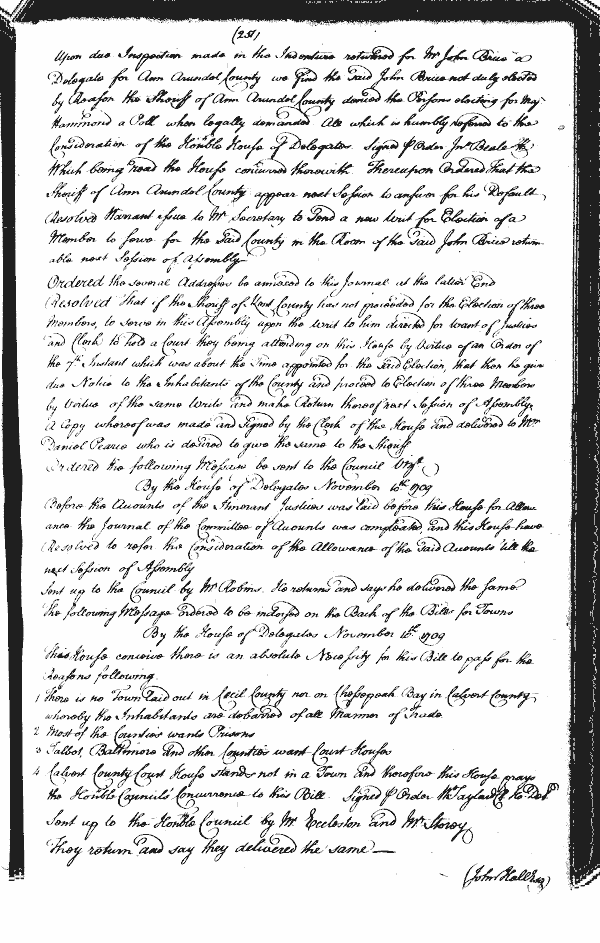 (251)
Upon due Inspection made in the Indenture returned for Mr John Brice a
Delegate for Ann Arundel County we find the said John Brice not duly elected
by Reason the Sheriff of Ann Arundel County denied the Persons electing for Maj
Hammond a Poll when legally demanded All which is humbly referred to the
Consideration of the Honble House of Delegates. Signed p Order Jno Beale
Which being read the House concurred therewith. Thereupon Ordered that the
Sheriff of Ann Arundel County appear next Session to answer for his Default
Resolved Warrant issue to Mr Secretary to Send a new Writ for Election of a
Member to serve for the said County in the Room of the said John Brice return
able next Session of Assembly
Ordered the several Addresses be annexed to this Journal at the latter End
Resolved That if the Sheriff of Kent County has not proceeded for the Election of three
Members, to serve in this Assembly upon the Writ to him directed for want of Justices
and Clerk to hold a Court they being attending on this House by Virtue of an Order of
the 7th Instant which was about the Time appointed for the said Election, that then he give
due Notice to the Inhabitants of the County and proceed to Election of three Members
by Virtue of the same Writs and make Return thereof next Session of Assembly.
A Copy whereof was made and signed by the Clerk of the House and delivered to Wm
Daniel Pearce who is desired to give the same to the Sheriff
Ordered the following Message be sent to the Council Vizt
By the House of Delegates November 10th 1709
Before the Accounts of the Itinerant Justices was laid before this House for Allow
ance the Journal of the Committee of Accounts was compleated and this House have
Resolved to refer the Consideration of the Allowance of the said Accounts till the
next Session of Assembly
Sent up to the Council by Mr Robins. He returns and says he delivered the same
The following Message ordered to be indorsed on the Back of the Bills for Towns
By the House of Delegates November 10th 1709
This House conceive there is an absolute Necessity for this Bill to pass for the
Reasons following.
1 There is no Town laid out in Cecil County nor on Chesepeak Bay in Calvert County
whereby the Inhabitants are debarred of all Manner of Trade
2 Most of the Counties wants Prisons
3 Talbot, Baltimore and other Counties want Court Houses
4 Calvert County Court House stands not in a Town and therefore this House prays
the Honble Council's Concurrence to this Bill. Signed p Order W Taylard Cl Ho Del
Sent up to the Honble Council by Mr Eccleston and Mr Storey
They return and say they delivered the same
(John Hall Esq)